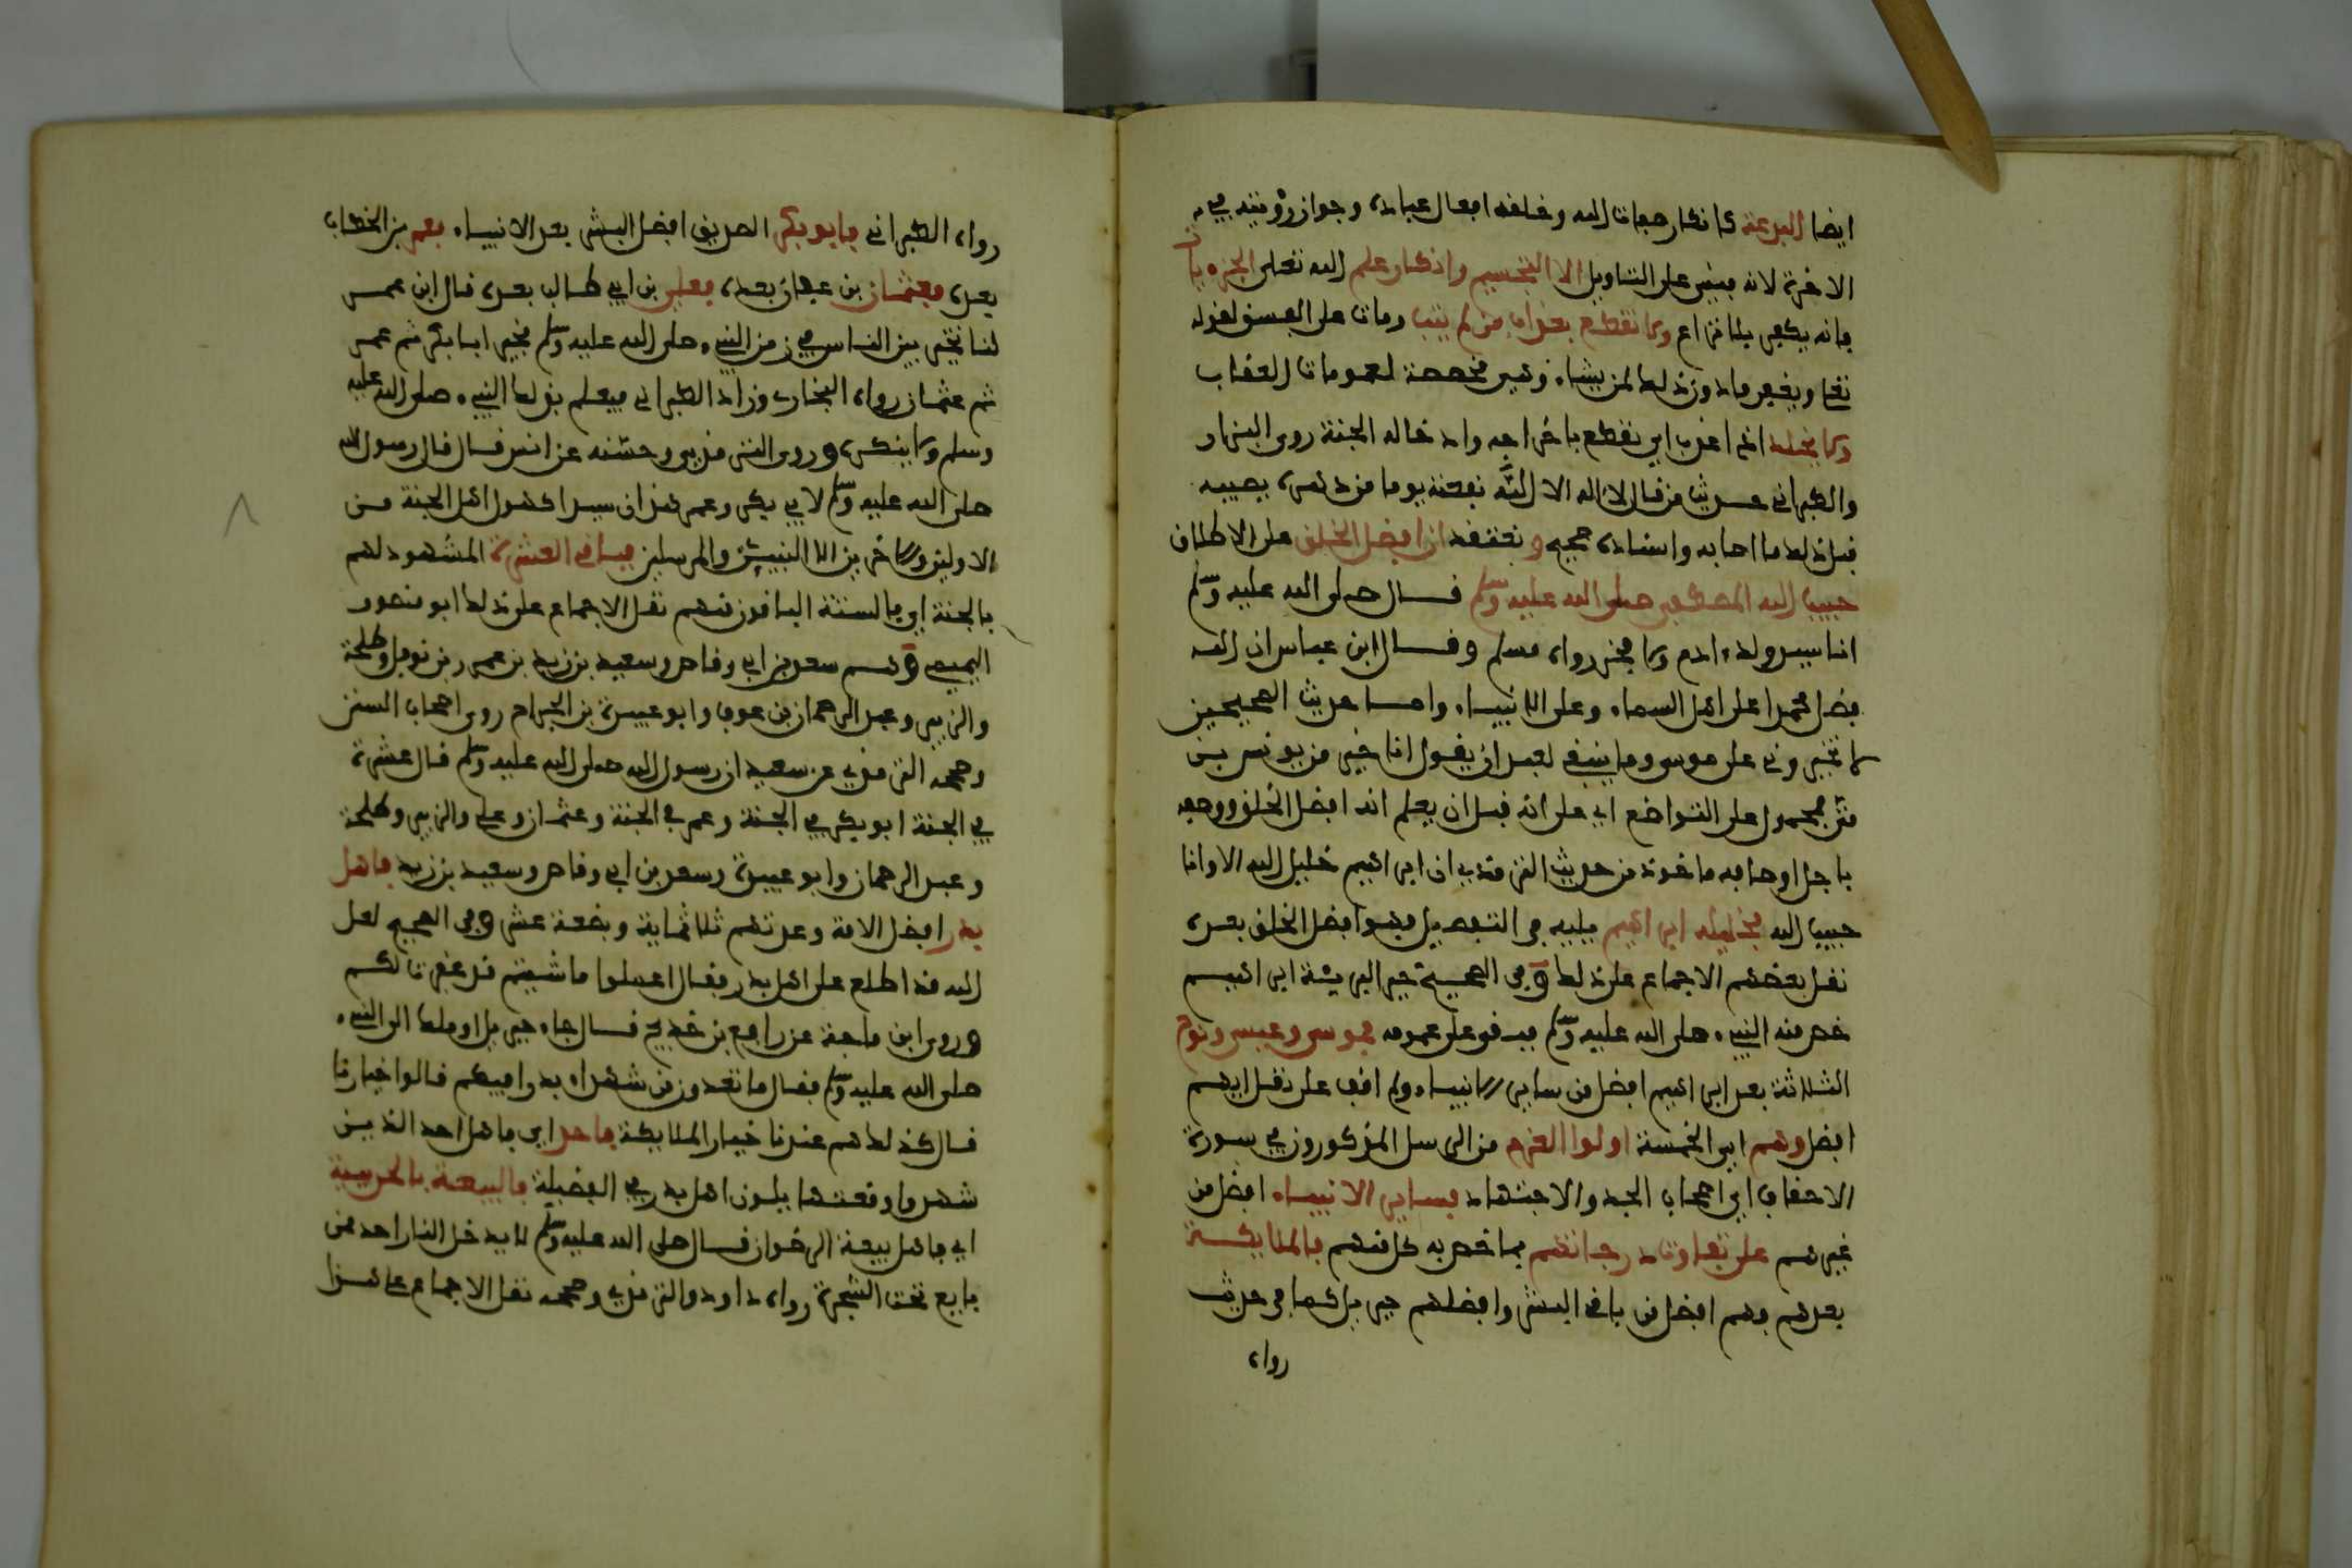 ايضا البدعة كانكار صفات الله وخلقه افعال عباده وجواز رؤيته في
الاخرة لانه مبني على التاويل الا التجسيم وانكار علم الله تعلى الجزءيات
فانه يكفر بلا نزاع ولا نقطع بعذاب من لم يتب ومات على الفسق لقوله
تعا ويغفر ما دون ذلك لمن يشاء وهي مخصصة لعمومات العقاب
ولا يخلد اذا عذب اي نقطع باخراجه وادخاله الجنة روى البزار
والطبراني حديث من قال لا اله الا الله نفعته يوما من دهره يصيبه
قبل ذلك ما اصابه واسناده صحيح ونعتقد ان افضل الخلق على الاطلاق
حبيب الله المصطفى صلى الله عليه وسلم قال صلى الله عليه وسلم
انا سيد ولد ءادم ولا فخر رواه مسلم وقال ابن عباس ان الله
فضل محمدا على اهل السماء وعلى الانبياء واما حديث الصحيحين
لا تخيروني على موسى وما ينبغي لعبد ان يقول انا خير من يونس بن
متى فمحمول على التواضع اي على انه قبل ان يعلم انه افضل الخلق ووصفه
باجل اوصافه ماخوذ من حديث الترمذي ان ابراهيم خليل الله الا وانا
حبيب الله فخليله ابراهيم يليه في التفضيل فهو افضل الخلق بعده
نقل بعضهم الاجماع على ذلك وفي الصحيح خير البرية ابراهيم
خص منه النبيء صلى الله عليه وسلم فبقي على عمومه فموسى وعيسى ونوح
الثلاثة بعد ابراهيم افضل من ساير الانبياء ولم اقف على نقل ايهم
افضل وهم اي الخمسة اولوا العزم من الرسل المذكورون في سورة
الاحقاف اي اصحاب الجد والاجتهاد فساير الانبياء افضل من
غيرهم على تفاوت درجاتهم بما خص به كل منهم فالملايكة
بعدهم فهم افضل من باقي البشر وافضلهم جبريل كما في حديث
رواه
رواه الطبراني فابو بكر الصديق افضل البشر بعد الانبياء فعمر بن الخطاب
بعده فعثمان بن عفان بعده فعلي بن ابي طالب بعده قال ابن عمر
كنا نخير بين الناس في زمن النبيء صلى الله عليه وسلم فنخير ابا بكر ثم عمر
ثم عثمان رواه البخاري وزاد الطبراني فيعلم بذلك النبيء صلى الله عليه
وسلم ولا ينكره وروى الترمذي وحسنه عن انس قال قال رسول الله
صلى الله عليه وسلم لابي بكر وعمر هذان سيدا كهول اهل الجنة من
الاولين والاخرين الا النبيين والمرسلين فباقي العشرة المشهود لهم
بالجنة اي فالستة الباقون منهم نقل الاجماع على ذلك ابو منصور
التميمي وهم سعد بن ابي وقاص وسعيد بن زيد بن عمرو بن نوفل وطلحة
والزبير وعبد الرحمان بن عوف وابو عبيدة بن الجراح روى اصحاب السنن
وصححه الترمذي عن سعيد ان رسول الله صلى الله عليه وسلم قال عشرة
في الجنة ابو بكر في الجنة وعمر في الجنة وعثمان وعلي والزبير وطلحة
وعبد الرحمان وابو عبيدة وسعد بن ابي وقاص وسعيد بن زيد فاهل
بدر افضل الامة وعدتهم ثلاثماية وبضعة عشر وفي الصحيح لعل
الله قد اطلع على اهل بدر فقال اعملوا ما شيتم قد غفرت لكم
وروى ابن ماجة عن رافع بن خديج قال جاء جبريل او ملك الى النبيء
صلى الله عليه وسلم فقال ما تعدون من شهد بدرا فيكم قالوا خيارنا
قال كذلك هم عندنا خيار الملايكة فاحد اي فاهل احد الذين
شهدوا وقعتها يلون اهل بدر في الفضيلة فالبيعة بالحديبية
اي فاهل بيعة الرضوان قال صلى الله عليه وسلم لا يدخل النار احد ممن
بايع تحت الشجرة رواه داود والترمذي وصححه نقل الاجماع على هذا